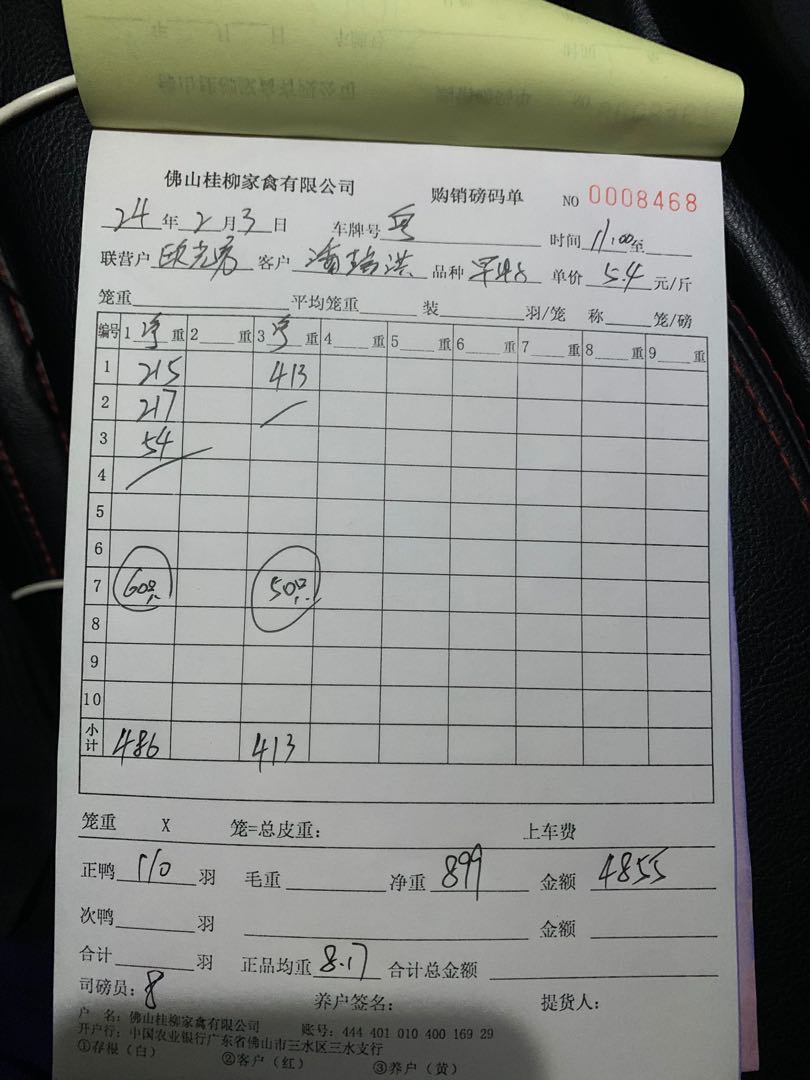 佛山桂柳家禽有限公司 购销磅码单 NO 0008468
24年2月3日 车牌号 时间11:00至
联营户 客户 潘瑞洪 品种 单价5.4元/斤
笼重 平均笼重 装 羽/笼 称 笼/磅
编号 1净重 2重 3净重 4重 5重 6重 7重 8重 9重
1 215 413
2 217
3 54
4
5
6
7 60只 50只
8
9
10
小计 486 413
笼重 X 笼=总皮重: 上车费
正鸭110羽 毛重 净重899 金额4855
次鸭 羽 金额
合计 羽 正品均重8.17 合计总金额
司磅员: 养户签名: 提货人:
户 名: 佛山桂柳家禽有限公司 账号: 444 401 010 400 169 29
开户行: 中国农业银行广东省佛山市三水区三水支行
①存根(白) ②客户(红) ③养户(黄)